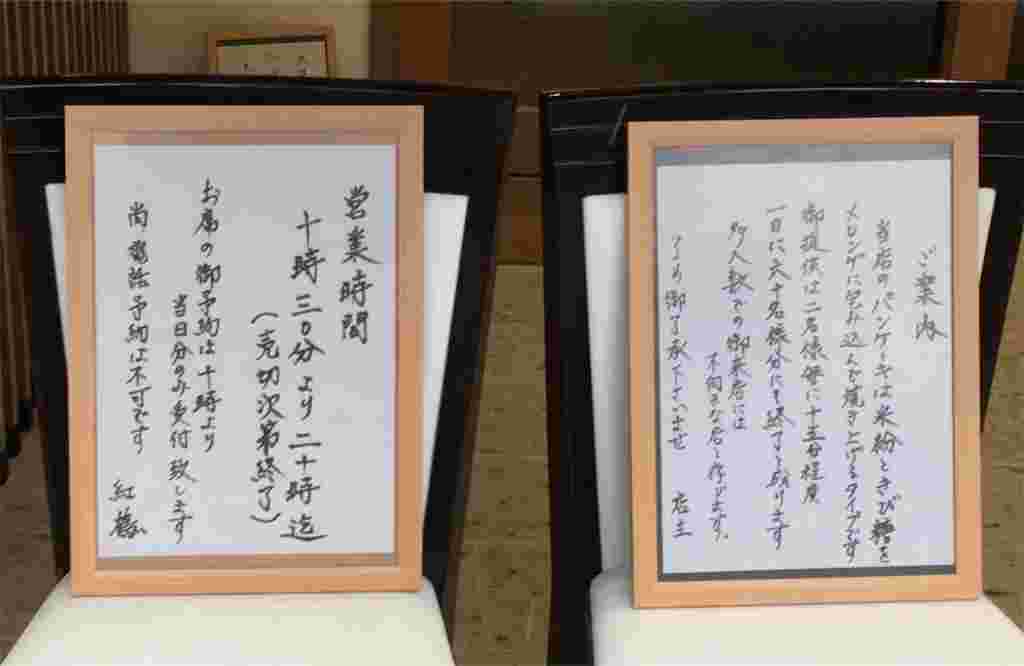 営業時間
十時三〇分より二十時迄
(売切次第終了)
お席の御予約は十時より
当日分のみ受付致します
尚電話予約は不可です
紅鶴
ご案内
当店のパンケーキは米粉ときび糖を
メレンゲに包み込んで焼き上げるタイプです
御提供は二名様毎に十五分程度
一日に六十名様分にて終了と成ります
多人数での御来店には
不向きな店と存じます。
予め御了承下さいませ
店主